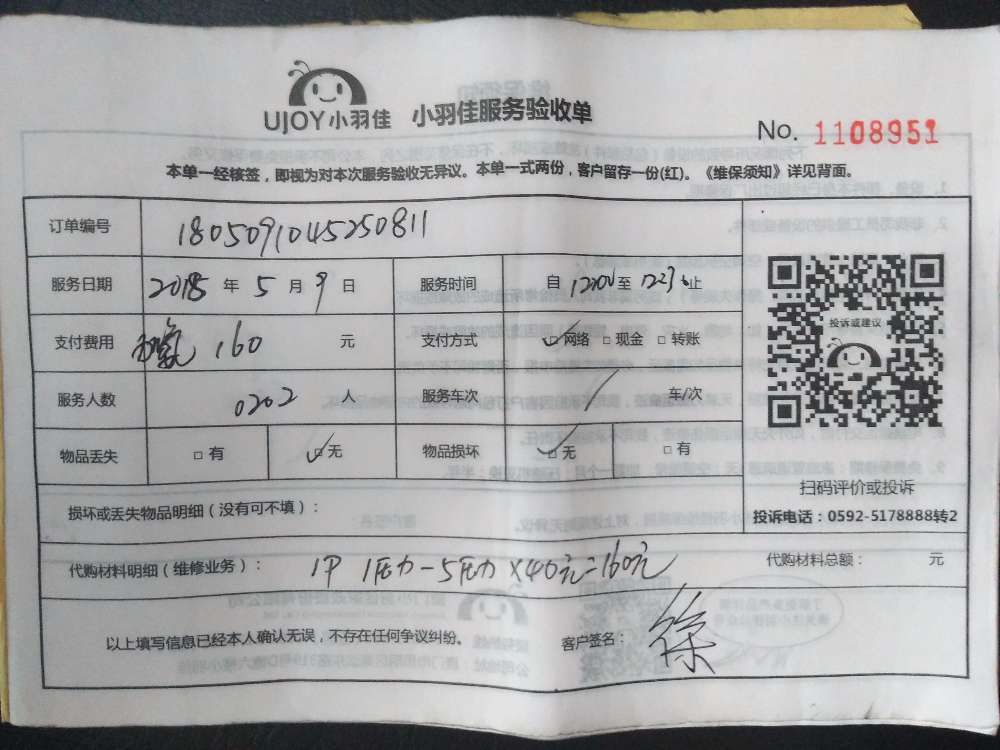 UJOY小羽佳 小羽佳服务验收单
No. 1108951
本单一经核签，即视为对本次服务验收无异议。本单一式两份，客户留存一份(红)。《维保须知》详见背面。
订单编号 1805091045250811
服务日期 2018年 5月 9日 服务时间 自 至 止
支付费用 160 元 支付方式 ☑网络 □现金 □转账
服务人数 0202 人 服务车次 / 车/次
物品丢失 □有 ☑无 物品损坏 ☑无 □有
投诉或建议
扫码评价或投诉
投诉电话：0592-5178888转2
损坏或丢失物品明细（没有可不填）：
代购材料明细（维修业务）： 1P 1压力-5压力×40元=160元 代购材料总额： 元
以上填写信息已经本人确认无误，不存在任何争议纠纷。 客户签名： 徐